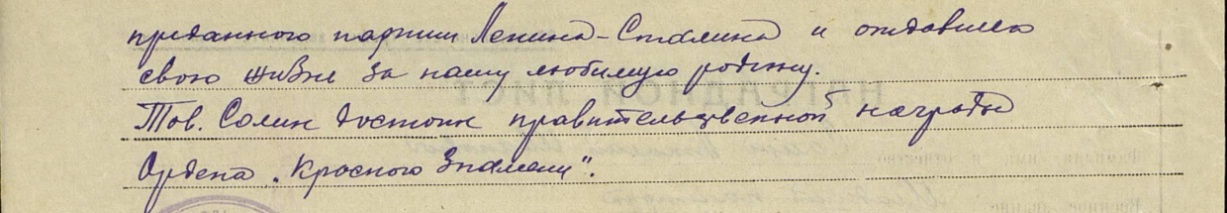 преданного партии Ленина-Сталина и отдавшего
свою жизнь за нашу любимую родину.
Тов. Солин достоин правительственной награды
Ордена „Красного Знамени".